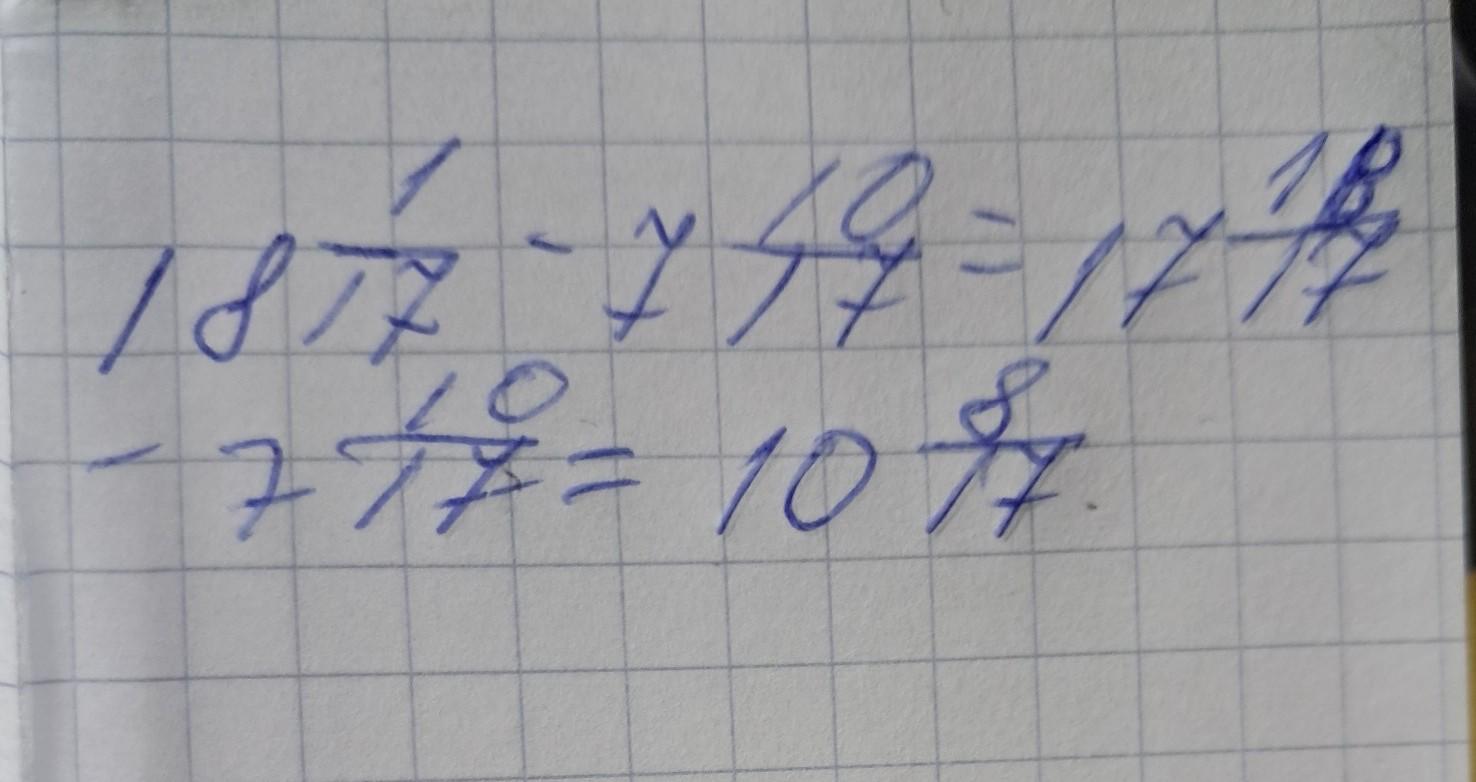 18 1/17 - 7 10/17 = 17 18/17
- 7 10/17 = 10 8/17.